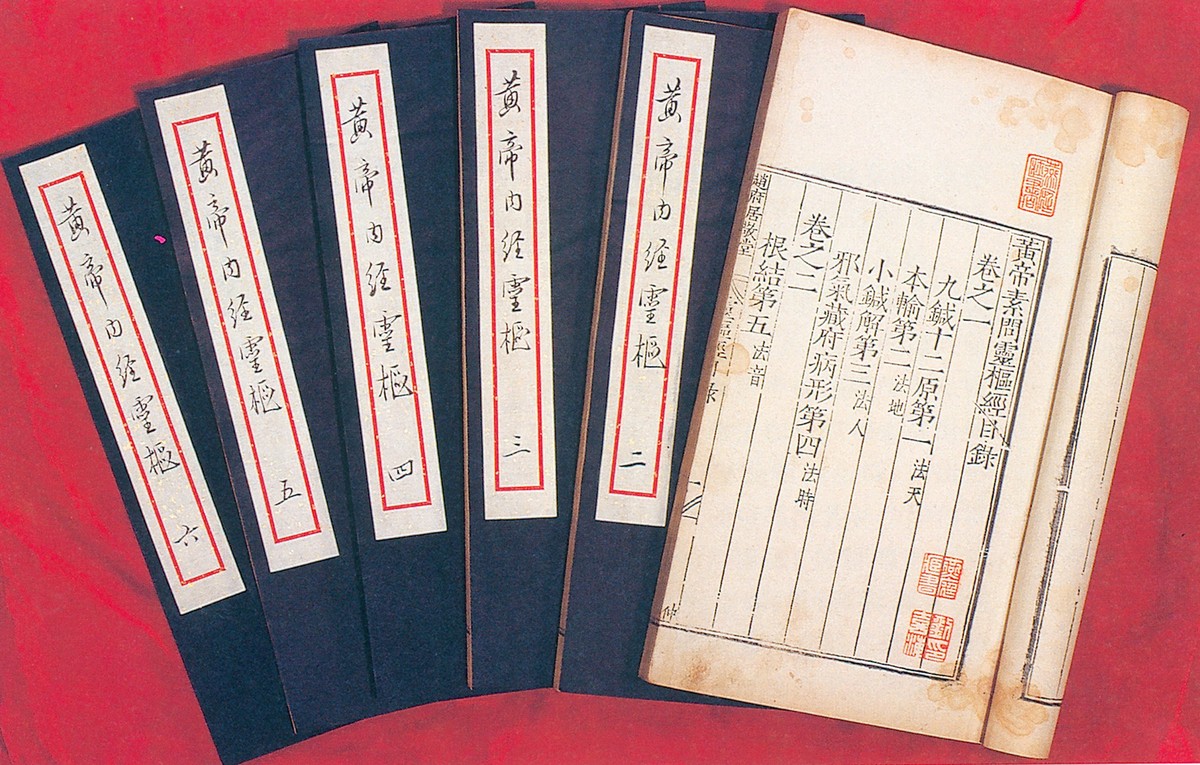 黃帝素問靈樞經目錄
卷之一
九鍼十二原第一法天
本輸第二法地
小鍼解第三法人
邪氣藏府病形第四法時
卷之二
根結第五法音
趙府居敬堂
黄帝内经靈樞 二
黄帝内经靈樞 三
黄帝内经靈樞 四
黄帝内经靈樞 五
黄帝内经靈樞 六